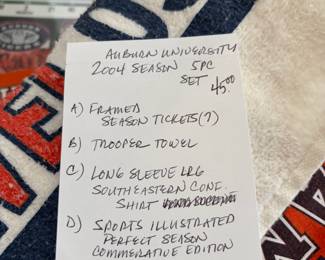 AUBURN UNIVERSITY
2004 SEASON 5PC
SET 45.00
A) FRAMED
SEASON TICKETS(7)
B) TROOPER TOWEL
C) LONG SLEEVE LRG
SOUTHEASTERN CONF.
SHIRT
D) SPORTS ILLUSTRATED
PERFECT SEASON
COMMERATIVE EDITION